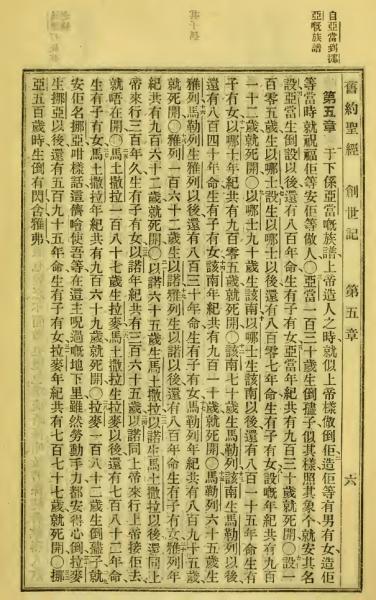 自亞當到挪
亞嘅族譜
舊約聖經 創世記 第五章 六
第五章 于下係亞當嘅族譜上帝造人之時就似上帝樣做倒佢造佢等有男有女造佢
等當時就祝福佢等安佢等做人〇亞當一百三十歲生倒孻子似其樣照其象个就安其名
設亞當生倒設以後還有八百年命生有子有女亞當年紀共有九百三十歲就死開〇設一
百零五歲生以哪士設生以哪士以後還有八百零七年命生有子有女設嘅年紀共有九百
一十二歲就死開〇以哪士九十歲生該南以哪士生該南以後還有八百一十五年命生有
子有女以哪士年紀共有九百零五歲就死開〇該南七十歲生馬勒列該南生馬勒列以後
還有八百四十年命生有子有女該南年紀共有九百一十歲就死開〇馬勒列六十五歲生
雅列馬勒列生雅列以後還有八百三十年命生有子有女馬勒列年紀共有八百九十五歲
就死開〇雅列一百六十二歲生以諾雅列生以諾以後還有八百年命生有子有女雅列年
紀共有九百六十二歲就死開〇以諾六十五歲生馬土撒拉以諾生馬土撒拉以後還同上
帝來行三百年久生有子有女以諾年紀共有三百六十五歲以諾同上帝來行上帝接佢去
就唔在開〇馬土撒拉一百八十七歲生拉麥馬土撒拉生拉麥以後還有七百八十二年命
生有子有女馬土撒拉年紀共有九百六十九歲就死開〇拉麥一百八十二歲生倒孻子就
安佢名挪亞咁樣話這儕會使吾等在這主呪過嘅地下里雖然勞動手力都安得心倒拉麥
生挪亞以後還有五百九十五年命生有子有女拉麥年紀共有七百七十七歲就死開〇挪
亞五百歲時生倒有閃含雅弗